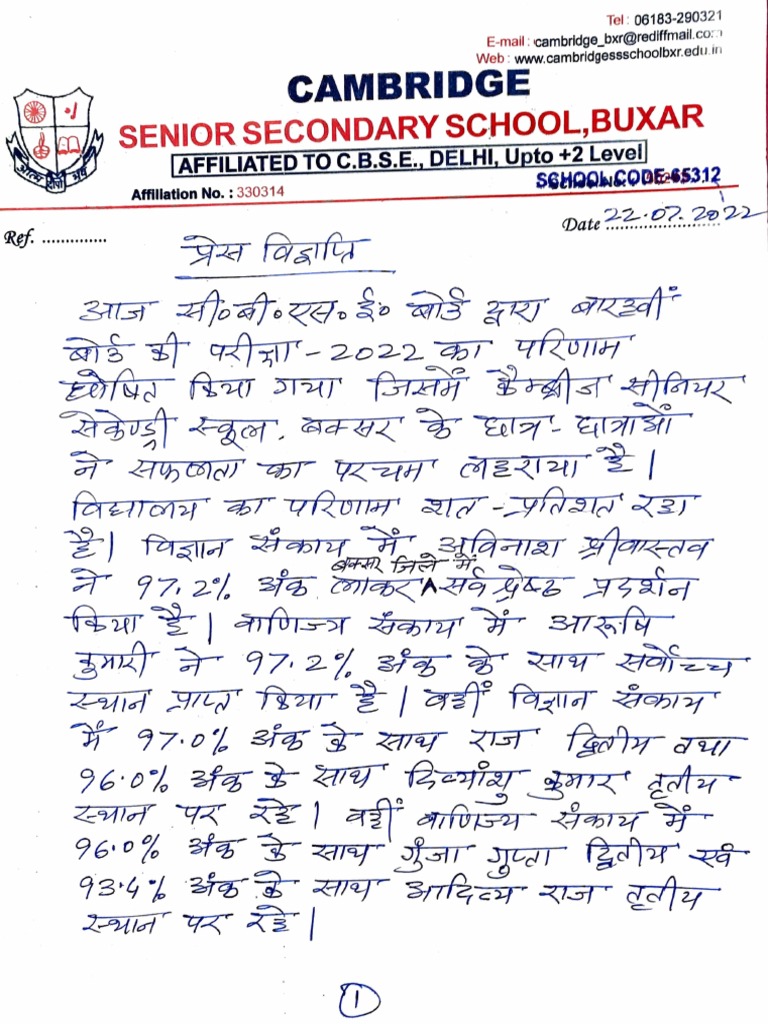 Tel : 06183-290321
E-mail : cambridge_bxr@rediffmail.com
Web : www.cambridgessschoolbxr.edu.in
CAMBRIDGE
SENIOR SECONDARY SCHOOL,BUXAR
AFFILIATED TO C.B.S.E., DELHI, Upto +2 Level
आत्म दीपो भव
Affiliation No. : 330314
SCHOOL CODE-65312
Ref. ..............
Date 22.07.2022
प्रेस विज्ञप्ति
आज सी॰बी॰एस॰ई॰ बोर्ड द्वारा बारहवीं
बोर्ड की परीक्षा-2022 का परिणाम
घोषित किया गया जिसमें कैम्ब्रीज सीनियर
सेकेण्ड्री स्कूल, बक्सर के छात्र-छात्राओं
ने सफलता का परचम लहराया है।
विद्यालय का परिणाम शत-प्रतिशत रहा
है। विज्ञान संकाय में अविनाश श्रीवास्तव
बक्सर जिले में
ने 97.2% अंक लाकर ^ सर्वश्रेष्ठ प्रदर्शन
किया है। वाणिज्य संकाय में आरूषि
कुमारी ने 97.2% अंक के साथ सर्वोच्च
स्थान प्राप्त किया है। वहीं विज्ञान संकाय
में 97.0% अंक के साथ राज द्वितीय तथा
96.0% अंक के साथ दिव्यांशु कुमार तृतीय
स्थान पर रहे। वहीं वाणिज्य संकाय में
96.0% अंक के साथ गुंजा गुप्ता द्वितीय एवं
93.4% अंक के साथ आदित्य राज तृतीय
स्थान पर रहे।
1